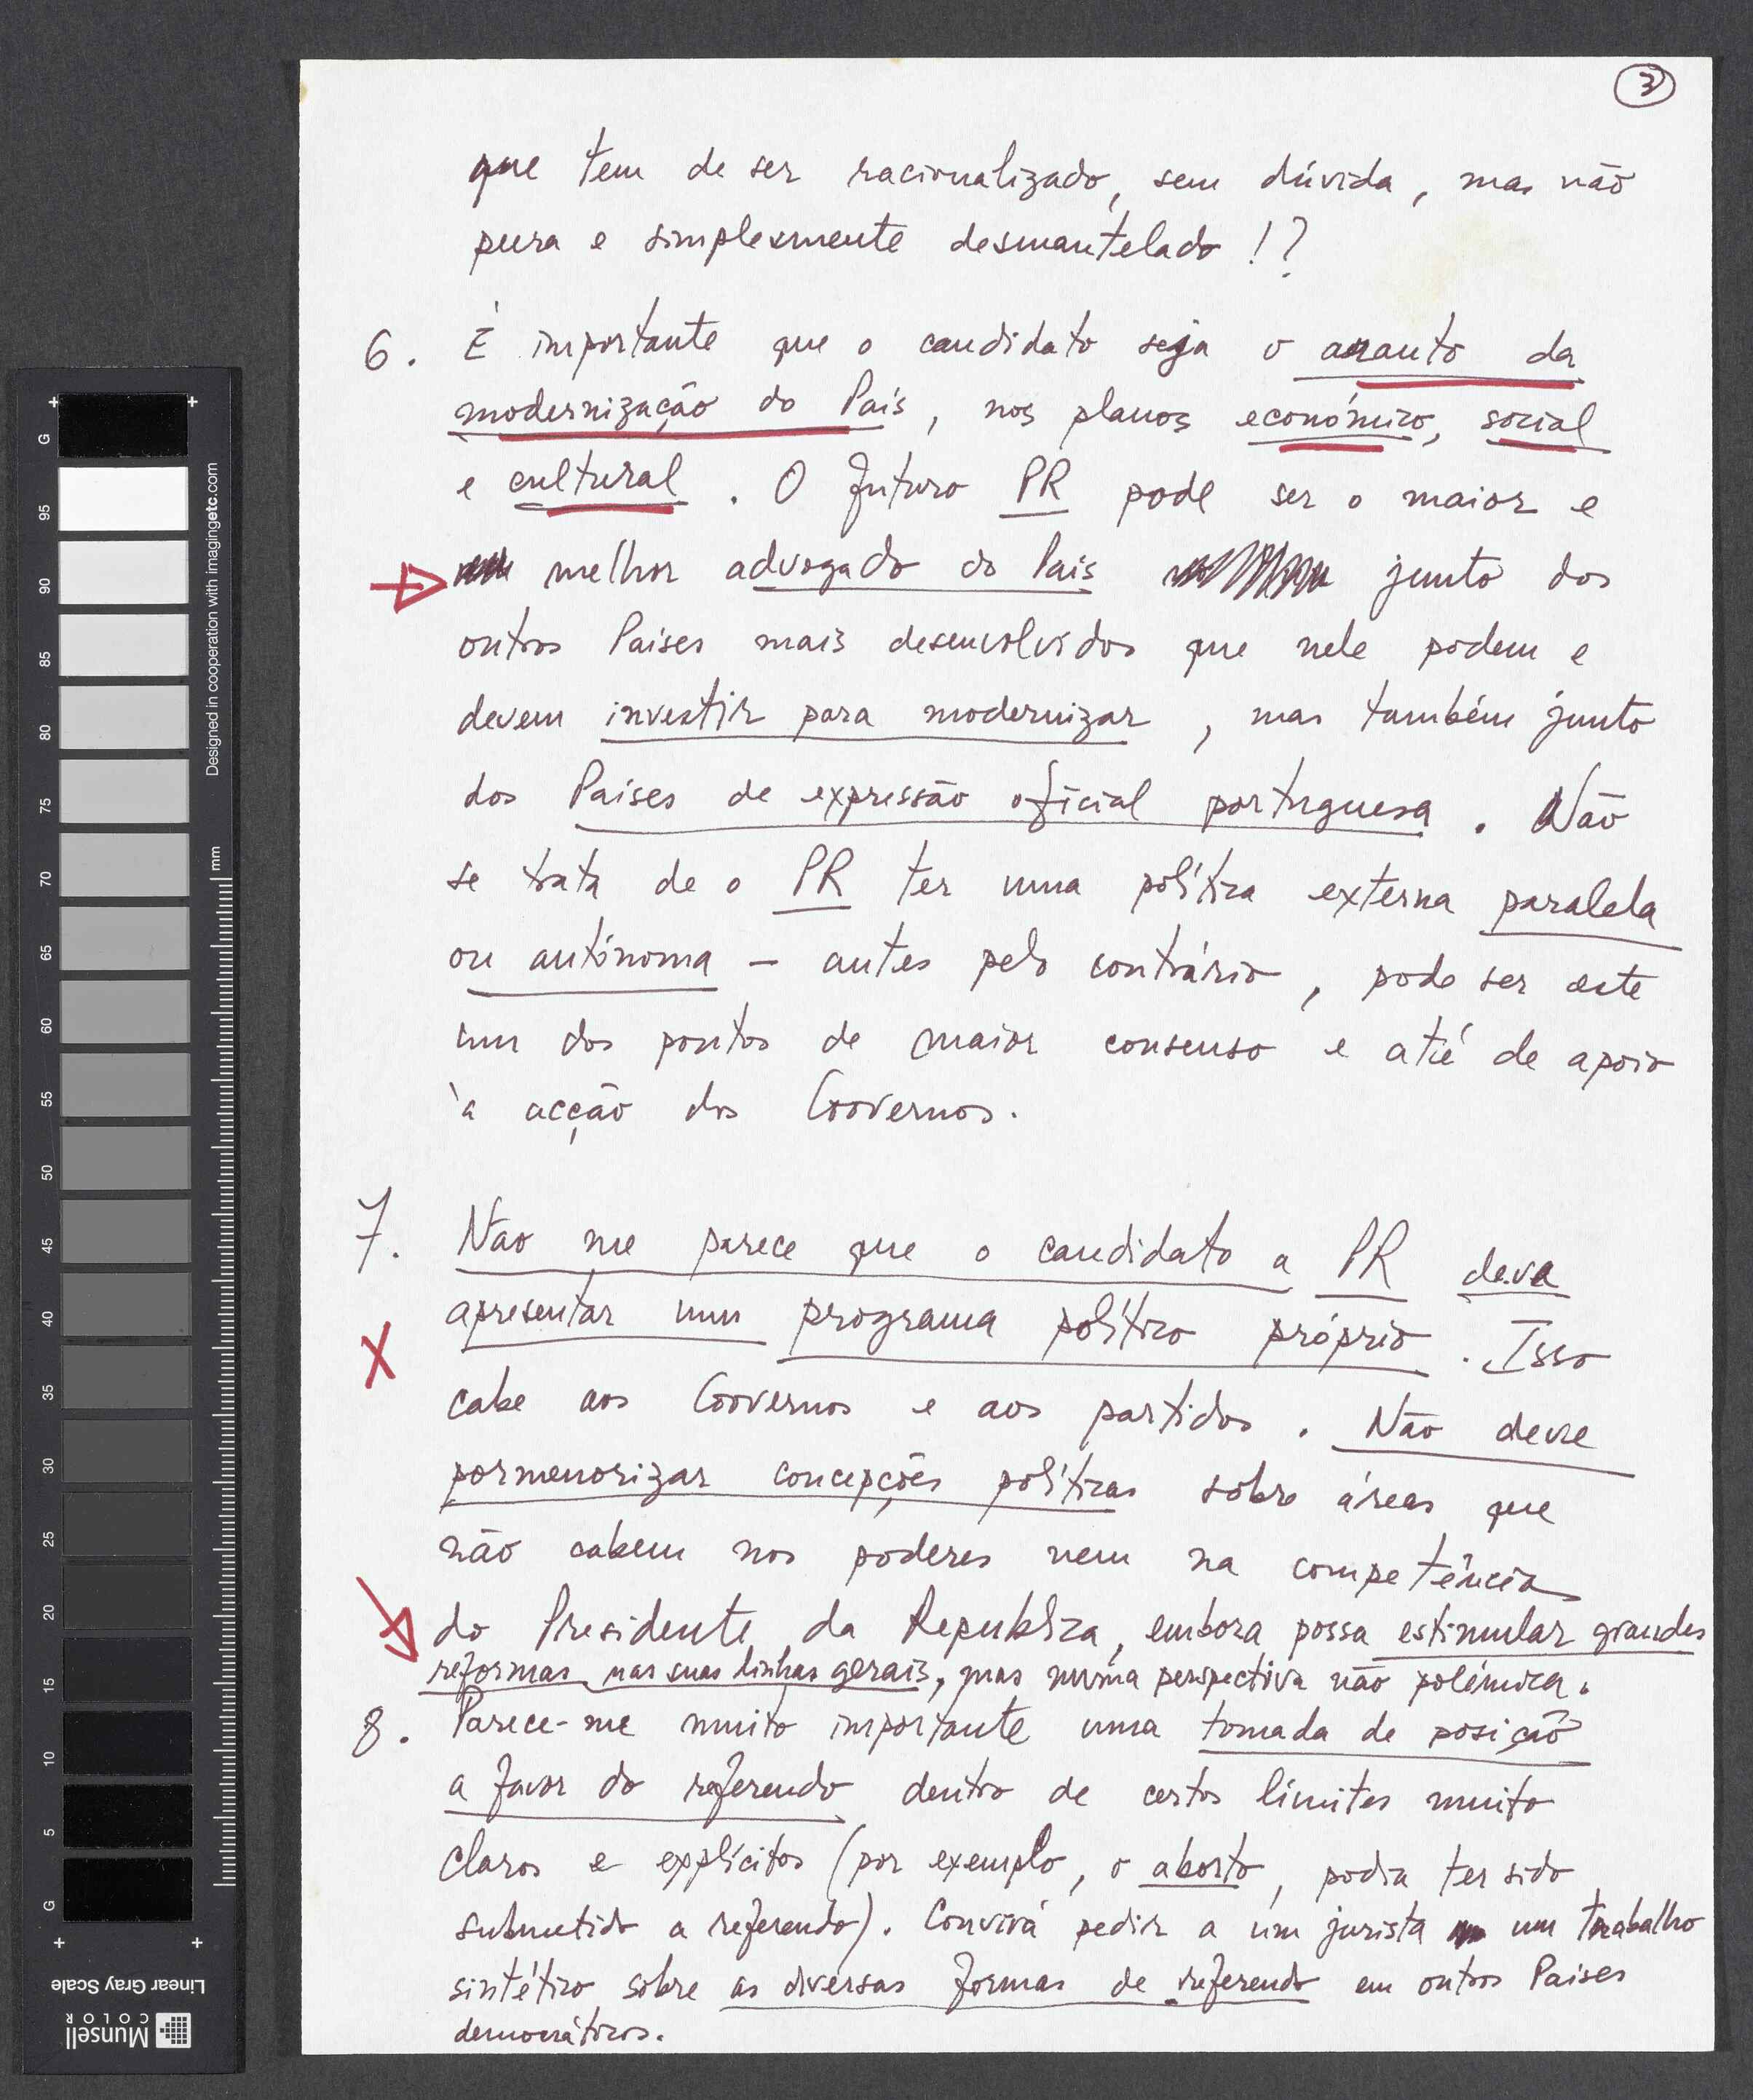 3
que tem de ser racionalizado, sem dúvida, mas não
pura e simplesmente desmantelado !?
6. É importante que o candidato seja o arauto da
modernização do País, nos planos económico, social
e cultural. O futuro PR pode ser o maior e
melhor advogado do País junto dos
outros Países mais desenvolvidos que nele podem e
devem investir para modernizar, mas também junto
dos Países de expressão oficial portuguesa. Não
se trata de o PR ter uma política externa paralela
ou autónoma – antes pelo contrário, pode ser este
um dos pontos de maior consenso e até de apoio
à acção dos Governos.
7. Não me parece que o candidato a PR deva
apresentar um programa político próprio. Isso
cabe aos Governos e aos partidos. Não deve
pormenorizar concepções políticas sobre áreas que
não cabem nos poderes nem na competência
do Presidente da República, embora possa estimular grandes
reformas nas suas linhas gerais, mas numa perspectiva não polémica.
8. Parece-me muito importante uma tomada de posição
a favor do referendo dentro de certos limites muito
claros e explícitos (por exemplo, o aborto, podia ter sido
submetido a referendo). Convirá pedir a um jurista um trabalho
sintético sobre as diversas formas de referendo em outros Países
democráticos.
G
95
90
85
80
75
70
65
60
55
50
45
40
35
30
25
20
15
10
5
G
Designed in cooperation with imagingetc.com
mm
Linear Gray Scale
Munsell
COLOR